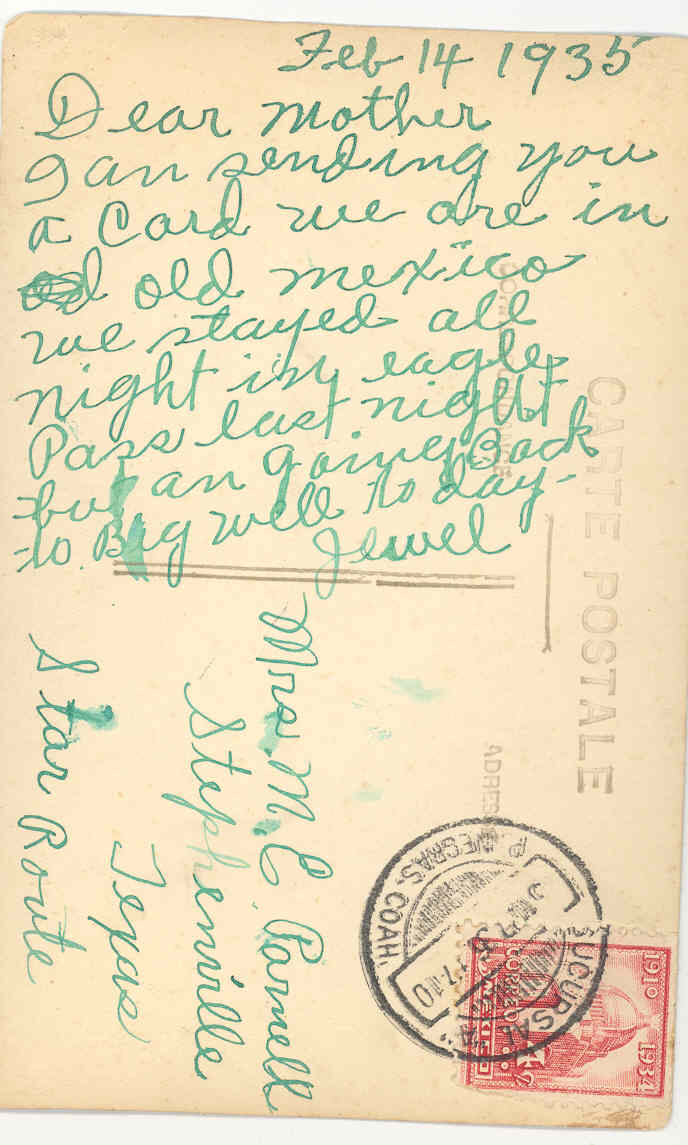 Feb 14 1935
Dear Mother
I an sending you
a Card we are in
old mexico
we stayed all
night in eagle
Pass last night
but an going Back
to Big well to day-
Jewel
Mrs. M. C. Parnell
Stephenville
Texas
Star Route
CARTE POSTALE
CORRESPONDANCE
ADRES
SUCURSAL "A"
P. NEGRAS, COAH.
1910 1934
CORREOS
MEXICO